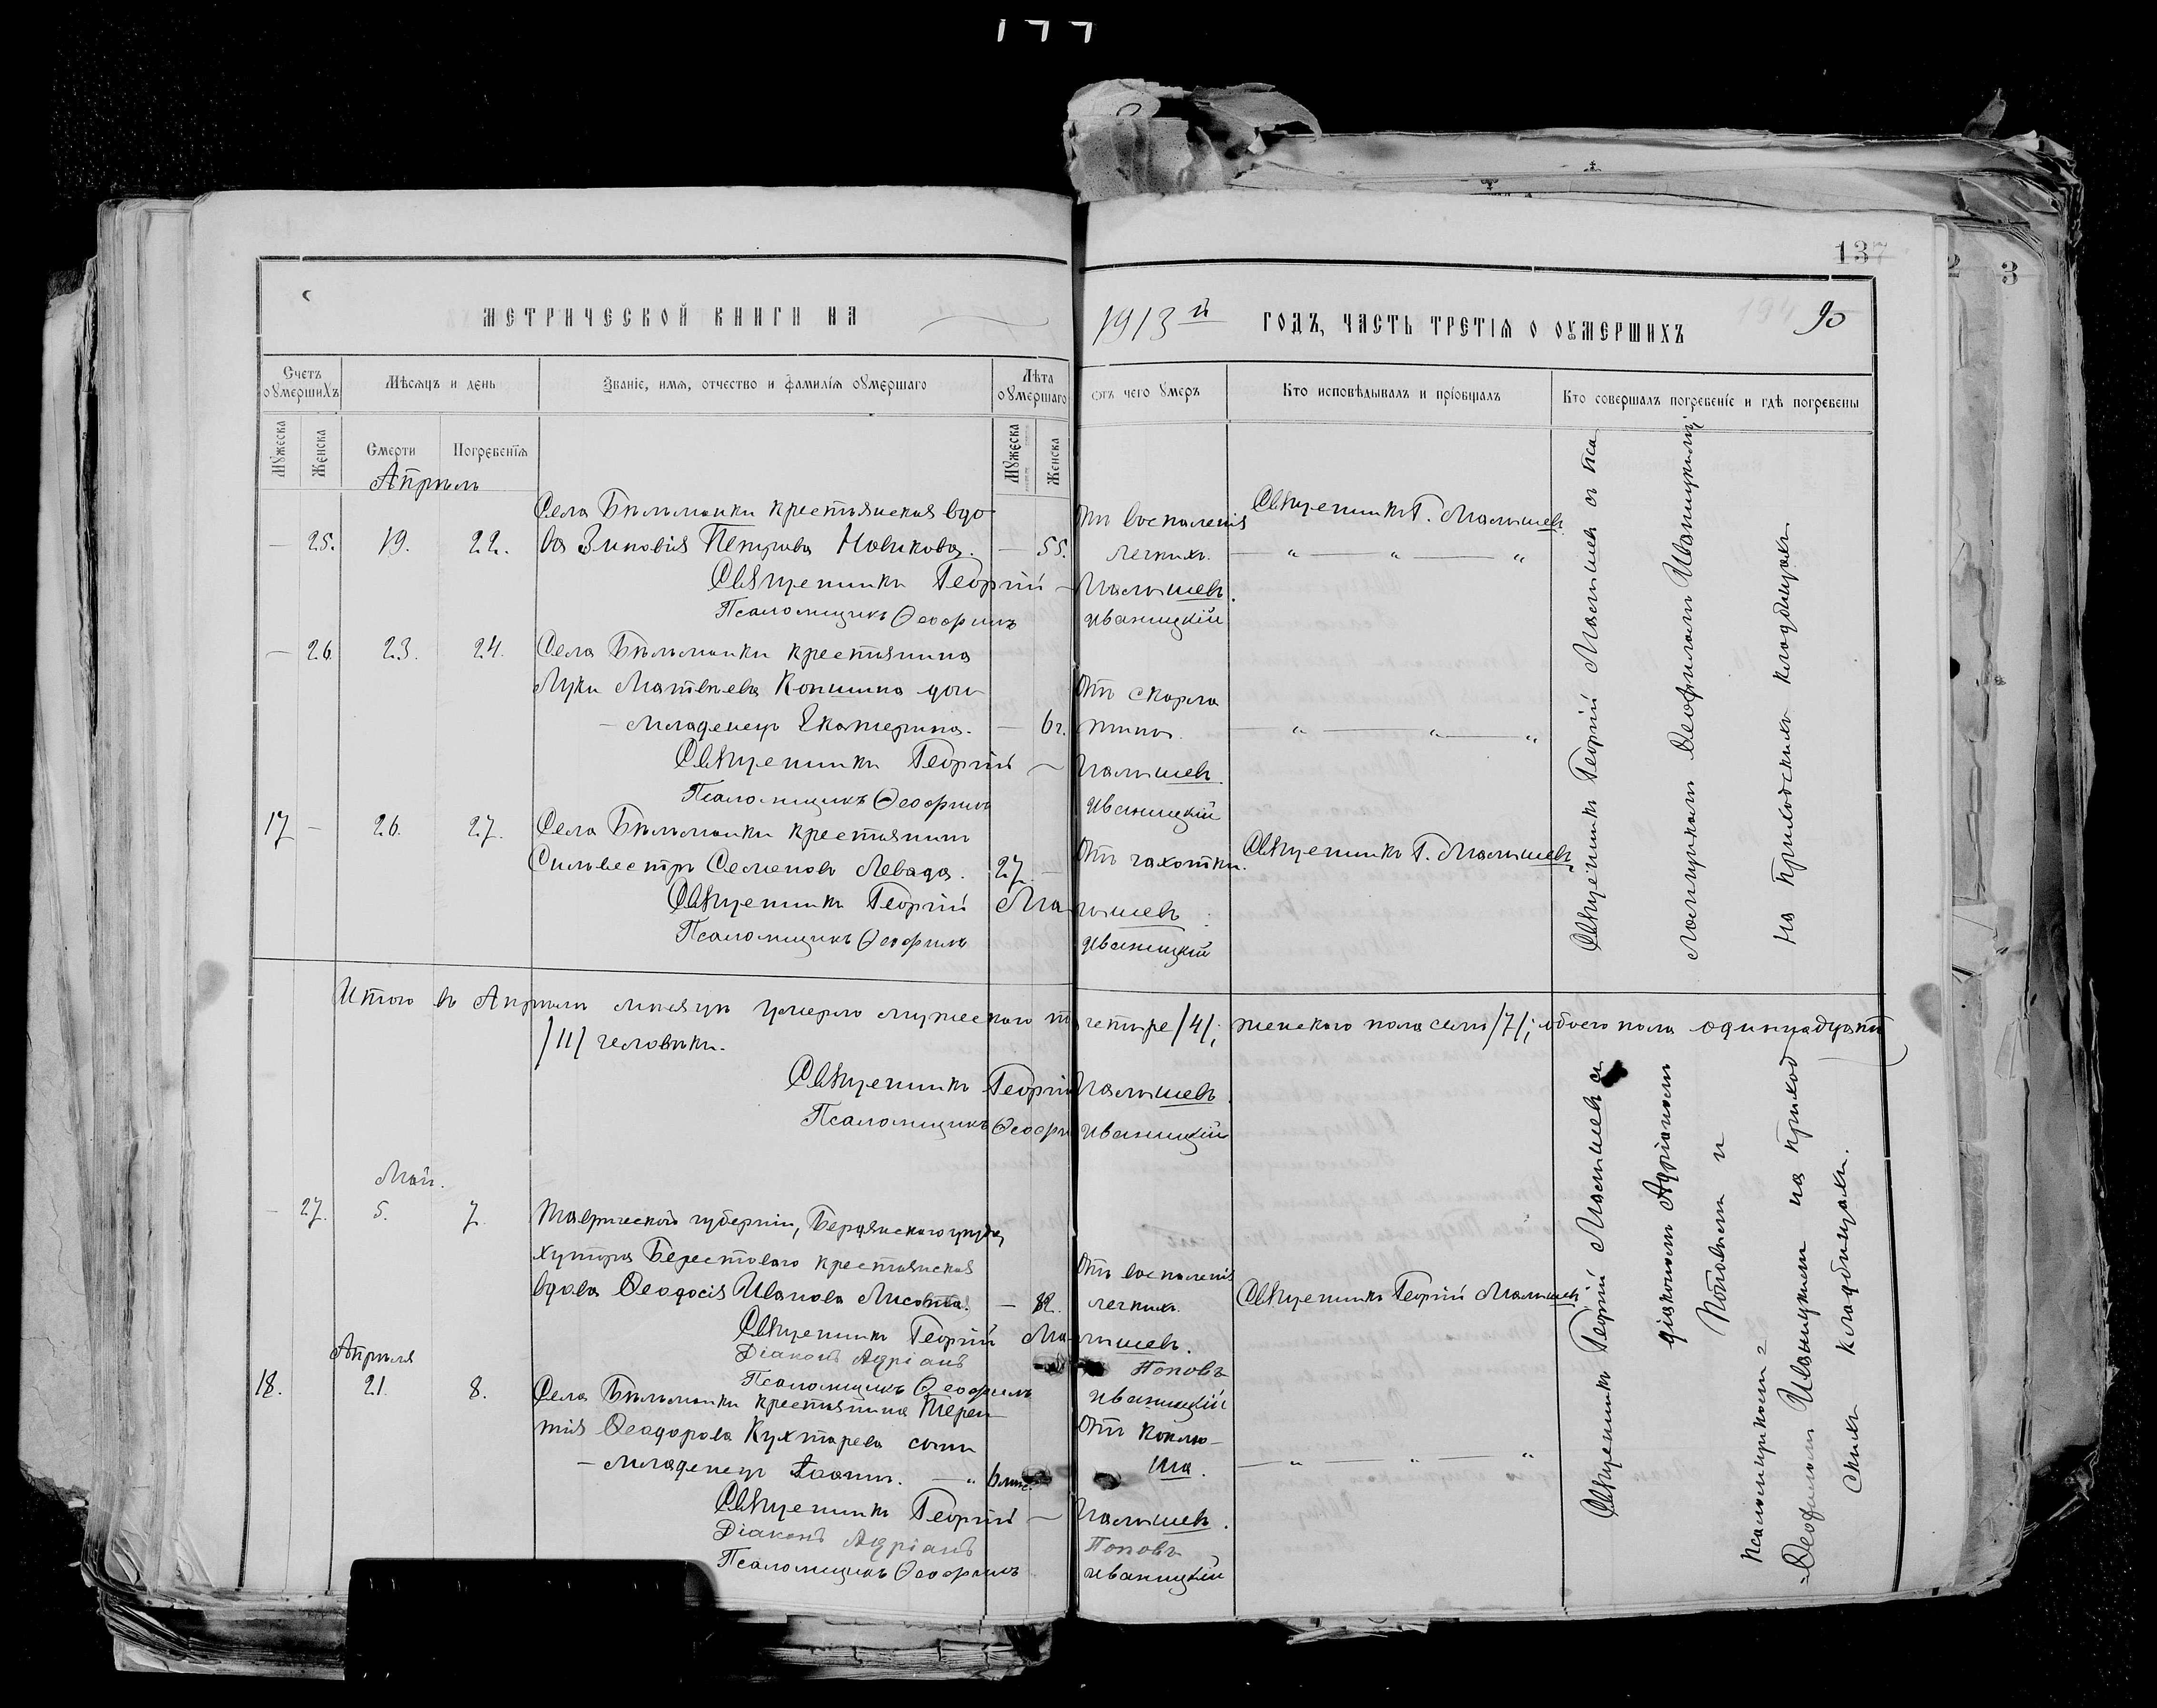 177
137
МЕТРИЧЕСКОЙ КНИГИ НА 1913 й ГОДЪ, ЧАСТЬ ТРЕТІЯ О ОУМЕРШИХЪ 90
Счетъ оумершихъ
Мѣсяцъ и день
Званіе, имя, отчество и фамилія оумершаго
Лѣта оумершаго
отъ чего умеръ
Кто исповѣдывалъ и пріобщалъ
Кто совершалъ погребеніе и гдѣ погребены
Мужеска
Женска
Смерти
Погребенія
Мужеска
Женска
Апрѣль
Села Бѣльманки крестьянская вдо Отъ воспаленія Священникъ Г. Малышевъ
— 25. 19. 22. ва Зиновія Петрова Новикова. — 55. легкихъ. — „ — „ — „
Священникъ Георгій Малышевъ.
Псаломщикъ Ѳеофилъ Иваницкій
— 26. 23. 24. Села Бѣльманки крестьянина
Луки Матвѣева Коншина дочь Отъ скарла
— младенецъ Екатерина. — 6 г. тины. — „ — „ — „
Священникъ Георгій Малышевъ.
Псаломщикъ Ѳеофилъ Иваницкій
17 — 26. 27. Села Бѣльманки крестьянинъ
Сильвестръ Семеновъ Левада. 27. — Отъ чахотки. Священникъ Г. Малышевъ
Священникъ Георгій Малышевъ.
Псаломщикъ Ѳеофилъ Иваницкій
Священникъ Георгій Малышевъ съ пса
ломщикомъ Ѳеофиломъ Иваницкимъ
на приходскихъ кладбищахъ
Итого въ Апрѣлѣ мѣсяцѣ умерло мужескаго п. четыре /4/; женскаго пола семь /7/; обоего пола одиннадцать
/11/ человѣкъ.
Священникъ Георгій Малышевъ.
Псаломщикъ Ѳеофи Иваницкій
Май.
— 27. 5. 7. Таврической губерніи, Бердянскаго уѣзда,
хутора Берестоваго крестьянская Отъ воспаленія
вдова Ѳеодосія Иванова — 82. легкихъ. Священникъ Георгій Малышевъ
Священникъ Георгій Малышевъ.
Діаконъ Адріанъ Поповъ
Псаломщикъ Ѳеофилъ Иваницкій
Апрѣля
18. 21. 8. Села Бѣльманки крестьянина Терен
тія Ѳеодорова Кухтарева сынъ Отъ коклю-
— младенецъ Іоаннъ. — „ 6 мѣс. ша. — „ „ — „
Священникъ Георгій Малышевъ.
Діаконъ Адріанъ Поповъ
Псаломщикъ Ѳеофилъ Иваницкій
Священникъ Георгій Малышевъ съ
діакономъ Адріаномъ
Поповымъ и
псаломщикомъ =
=Ѳеофиломъ Иваницкимъ на приход
скихъ кладбищахъ.
2
3